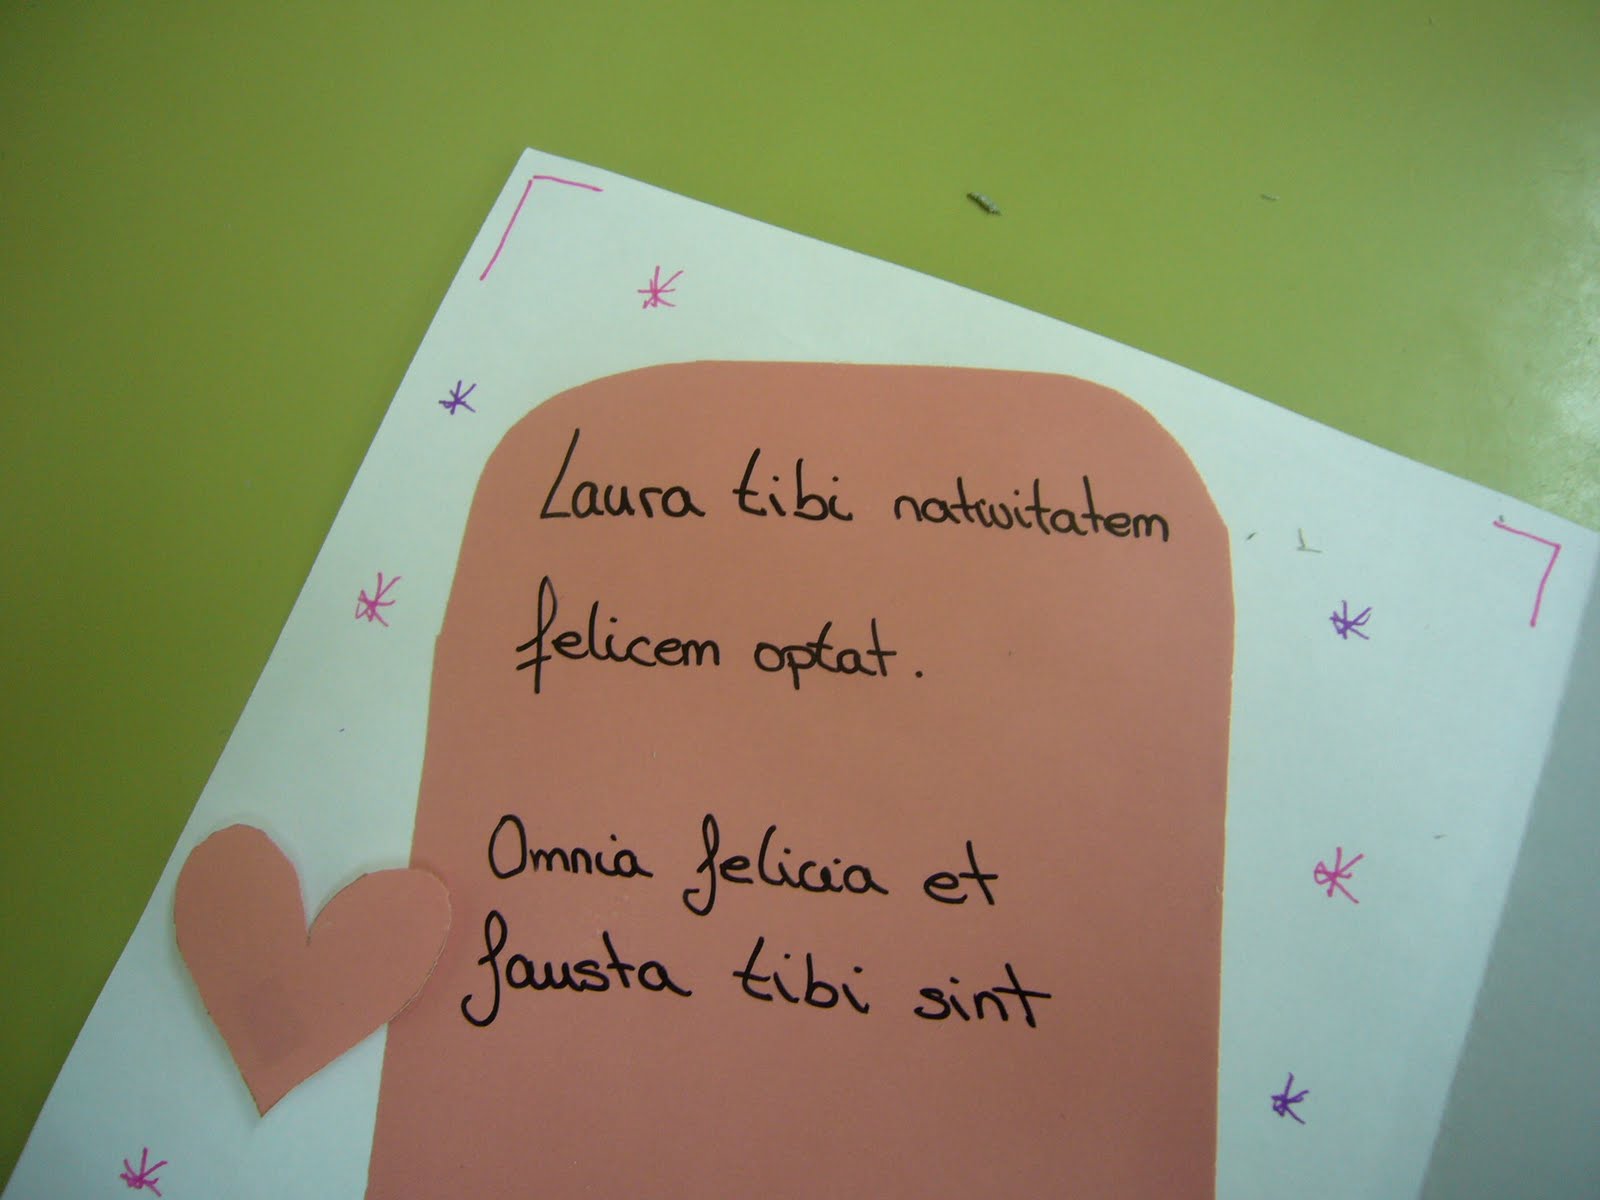 Laura tibi nativitatem
felicem optat.
Omnia felicia et
fausta tibi sint